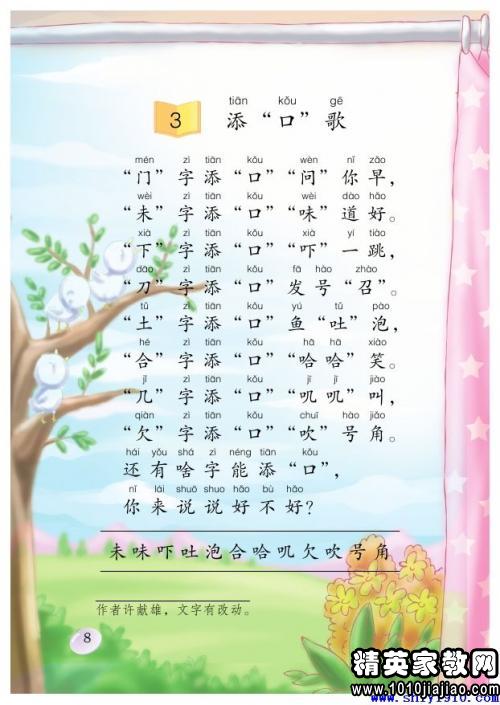 tiān kǒu gē
3 添“口”歌
mén zì tiān kǒu wèn nǐ zǎo
“门”字添“口”“问”你早，
wèi zì tiān kǒu wèi dào hǎo
“未”字添“口”“味”道好。
xià zì tiān kǒu xià yí tiào
“下”字添“口”“吓”一跳，
dāo zì tiān kǒu fā hào zhào
“刀”字添“口”发号“召”。
tǔ zì tiān kǒu yú tǔ pào
“土”字添“口”鱼“吐”泡，
hé zì tiān kǒu hā hā xiào
“合”字添“口”“哈哈”笑。
jǐ zì tiān kǒu jī jī jiào
“几”字添“口”“叽叽”叫，
qiàn zì tiān kǒu chuī hào jiǎo
“欠”字添“口”“吹”号角。
hái yǒu shá zì néng tiān kǒu
还有啥字能添“口”，
nǐ lái shuō shuo hǎo bù hǎo
你来说说好不好？
未味吓吐泡合哈叽欠吹号角
作者许献雄，文字有改动。
8
精英家教网
www.1010jiajiao.com
www.shiyi910.com